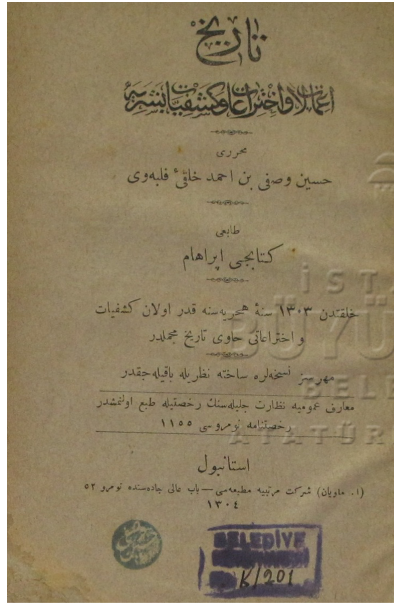 تاریخ
اعمالات و اختراعات و كشفیات بشریه
محرری
حسین وصفی بن احمد خلقی فلبه‌وی
طابعی
كتابجی ابراهام
خلقتدن ١٣٠٣ سنهٔ هجریه‌سنه قدر اولان كشفیات
و اختراعاتی حاوی تاریخ مجملدر
مهرسز نسخه‌لره ساخته نظریله باقیله‌جقدر
معارف عمومیه نظارت جلیله‌سنك رخصتیله طبع اولنمشدر
رخصتنامه نومروسی ١١٥٥
استانبول
شركت مرتبیه مطبعه‌سی — باب عالی جاده‌سنده نومرو ٥٢
١٣٠٤
İST
BÜYÜ
BEL
ATATÜR
BELEDİYE
K/201